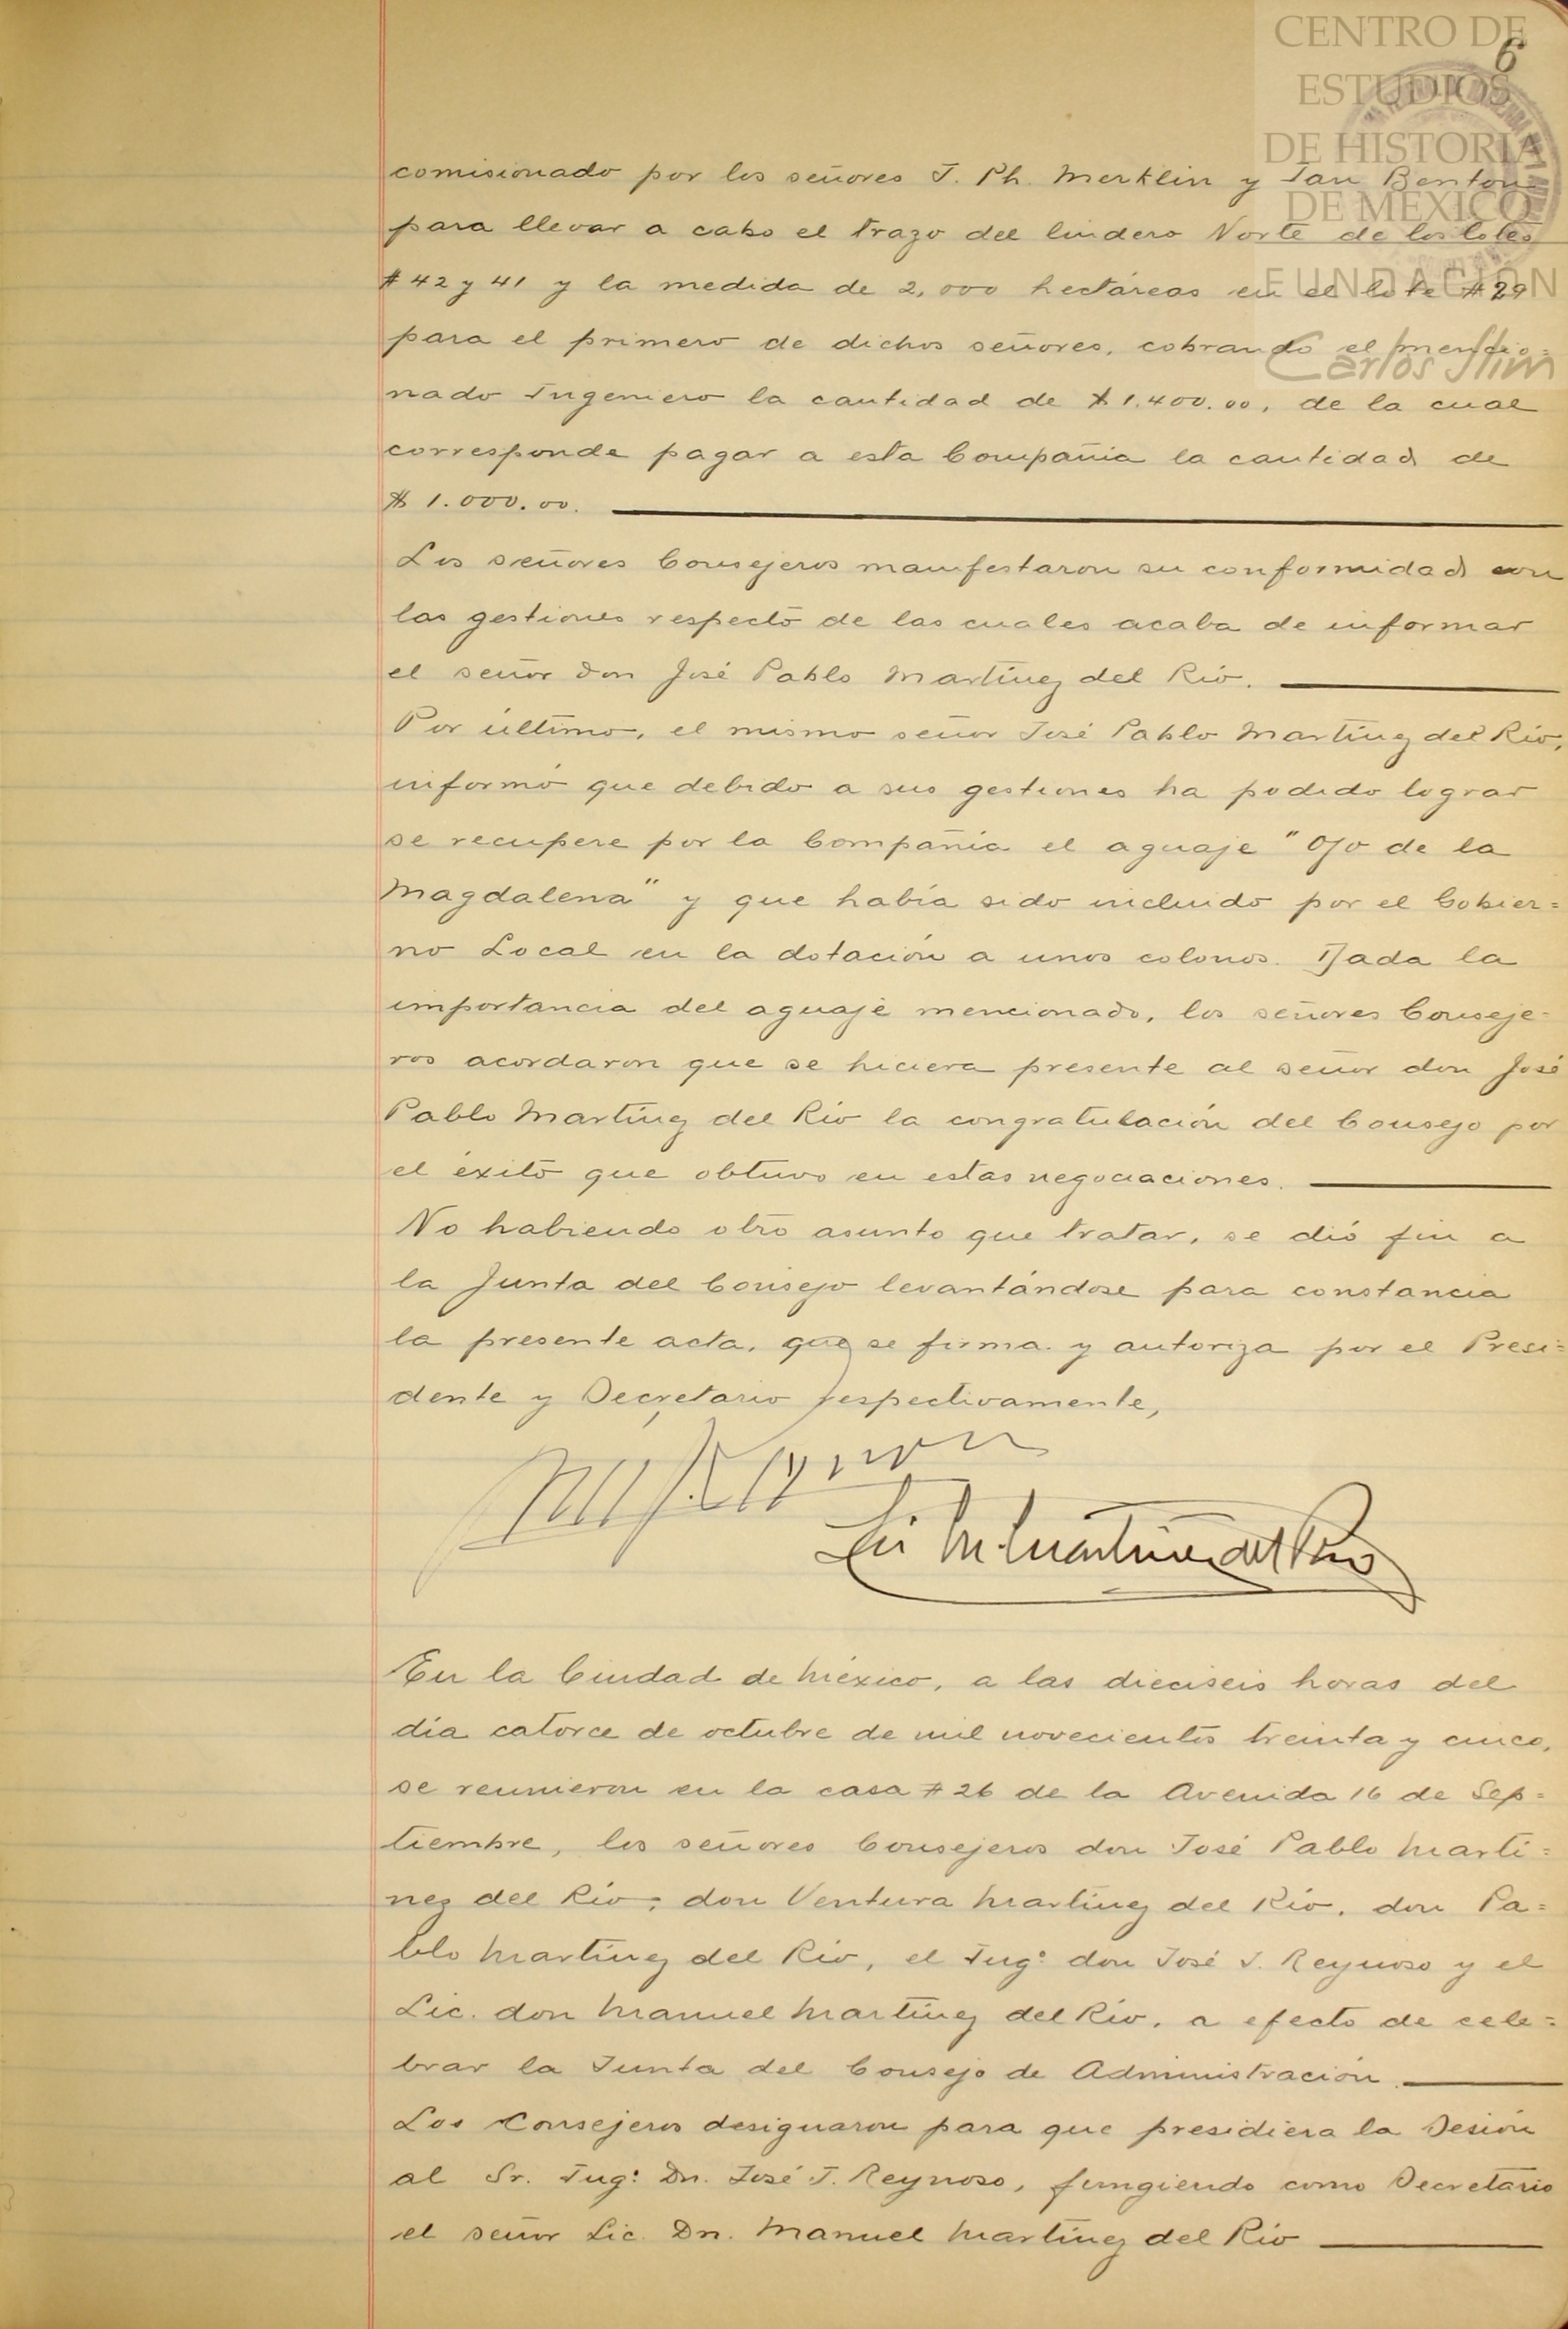 CENTRO DE
ESTUDIOS
DE HISTORIA
DE MEXICO
FUNDACION
Carlos Slim
6
comisionado por los señores J. Ph. Merklin y Ian Benton
para llevar a cabo el trazo del lindero Norte de los lotes
# 42 y 41 y la medida de 2,000 hectáreas en el lote # 29
para el primero de dichos señores, cobrando el mencio=
nado Ingeniero la cantidad de $ 1.400.00, de la cual
corresponde pagar a esta Compañia la cantidad de
$ 1.000.00.
Los señores Consejeros manifestaron su conformidad con
las gestiones respecto de las cuales acaba de informar
el señor don José Pablo Martínez del Río.
Por último, el mismo señor José Pablo Martínez del Río,
informó que debido a sus gestiones ha podido lograr
se recupere por la Compañía el aguaje "Ojo de la
Magdalena" y que había sido incluido por el Gobier=
no Local en la dotación a unos colonos. Dada la
importancia del aguaje mencionado, los señores Conseje-
ros acordaron que se hiciera presente al señor don José
Pablo Martínez del Río la congratulación del Consejo por
el éxito que obtuvo en estas negociaciones.
No habiendo otro asunto que tratar, se dió fin a
la Junta del Consejo levantándose para constancia
la presente acta, que se firma y autoriza por el Presi=
dente y Secretario respectivamente,
En la Ciudad de México, a las dieciseis horas del
día catorce de octubre de mil novecientos treinta y cinco,
se reunieron en la casa # 26 de la Avenida 16 de Sep=
tiembre, los señores Consejeros don José Pablo Martí=
nez del Río, don Ventura Martínez del Río, don Pa=
blo Martínez del Río, el Ing.º don José J. Reynoso y el
Lic. don Manuel Martínez del Río, a efecto de cele=
brar la Junta del Consejo de Administración.
Los Consejeros designaron para que presidiera la Sesión
al Sr. Ing.º Dn. José J. Reynoso, fungiendo como Secretario
el señor Lic. Dn. Manuel Martínez del Río